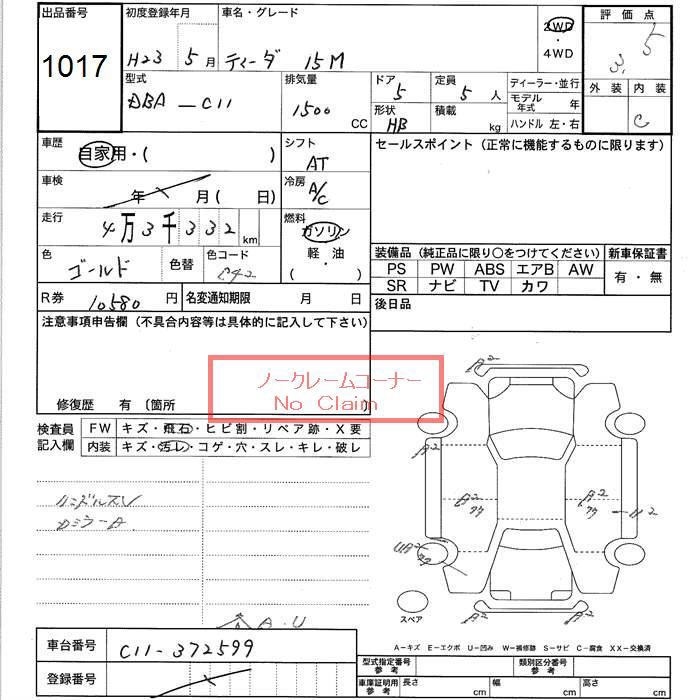 出品番号 初度登録年月 車名・グレード 2WD・4WD 評価点
1017 H23 5月 ティーダ 15M 3.5
型式 排気量 ドア 定員 ディーラー・並行 外装 内装
DBA-C11 1500 CC 5 5人 モデル年式 年 C
形状 HB 積載 kg ハンドル 左・右
車歴 自家用・( ) シフト AT セールスポイント(正常に機能するものに限ります)
車検 年 月( 日) 冷房 A/C
走行 4万3千332km 燃料 ガソリン
軽・油
( )
色 ゴールド 色替 色コード
装備品(純正品に限り○をつけてください) 新車保証書
PS PW ABS エアB AW 有・無
SR ナビ TV カワ
R券 10580円 名変通知期限 月 日 後日品
注意事項申告欄(不具合内容等は具体的に記入して下さい)
ノークレームコーナー
No Claim
修復歴 有〔箇所
検査員記入欄 FW キズ・飛石・ヒビ割・リペア跡・X要
内装 キズ・汚レ・コゲ・穴・スレ・キレ・破レ
A2
A2
A2 A2
U2
スペア
A・U
A-キズ E-エクボ U-凹み W-補修跡 S-サビ C-腐食 XX-交換済
車台番号 C11-372599
型式指定番号参考 類別区分番号参考
登録番号
車庫証明用参考 長さ cm 幅 cm 高さ cm